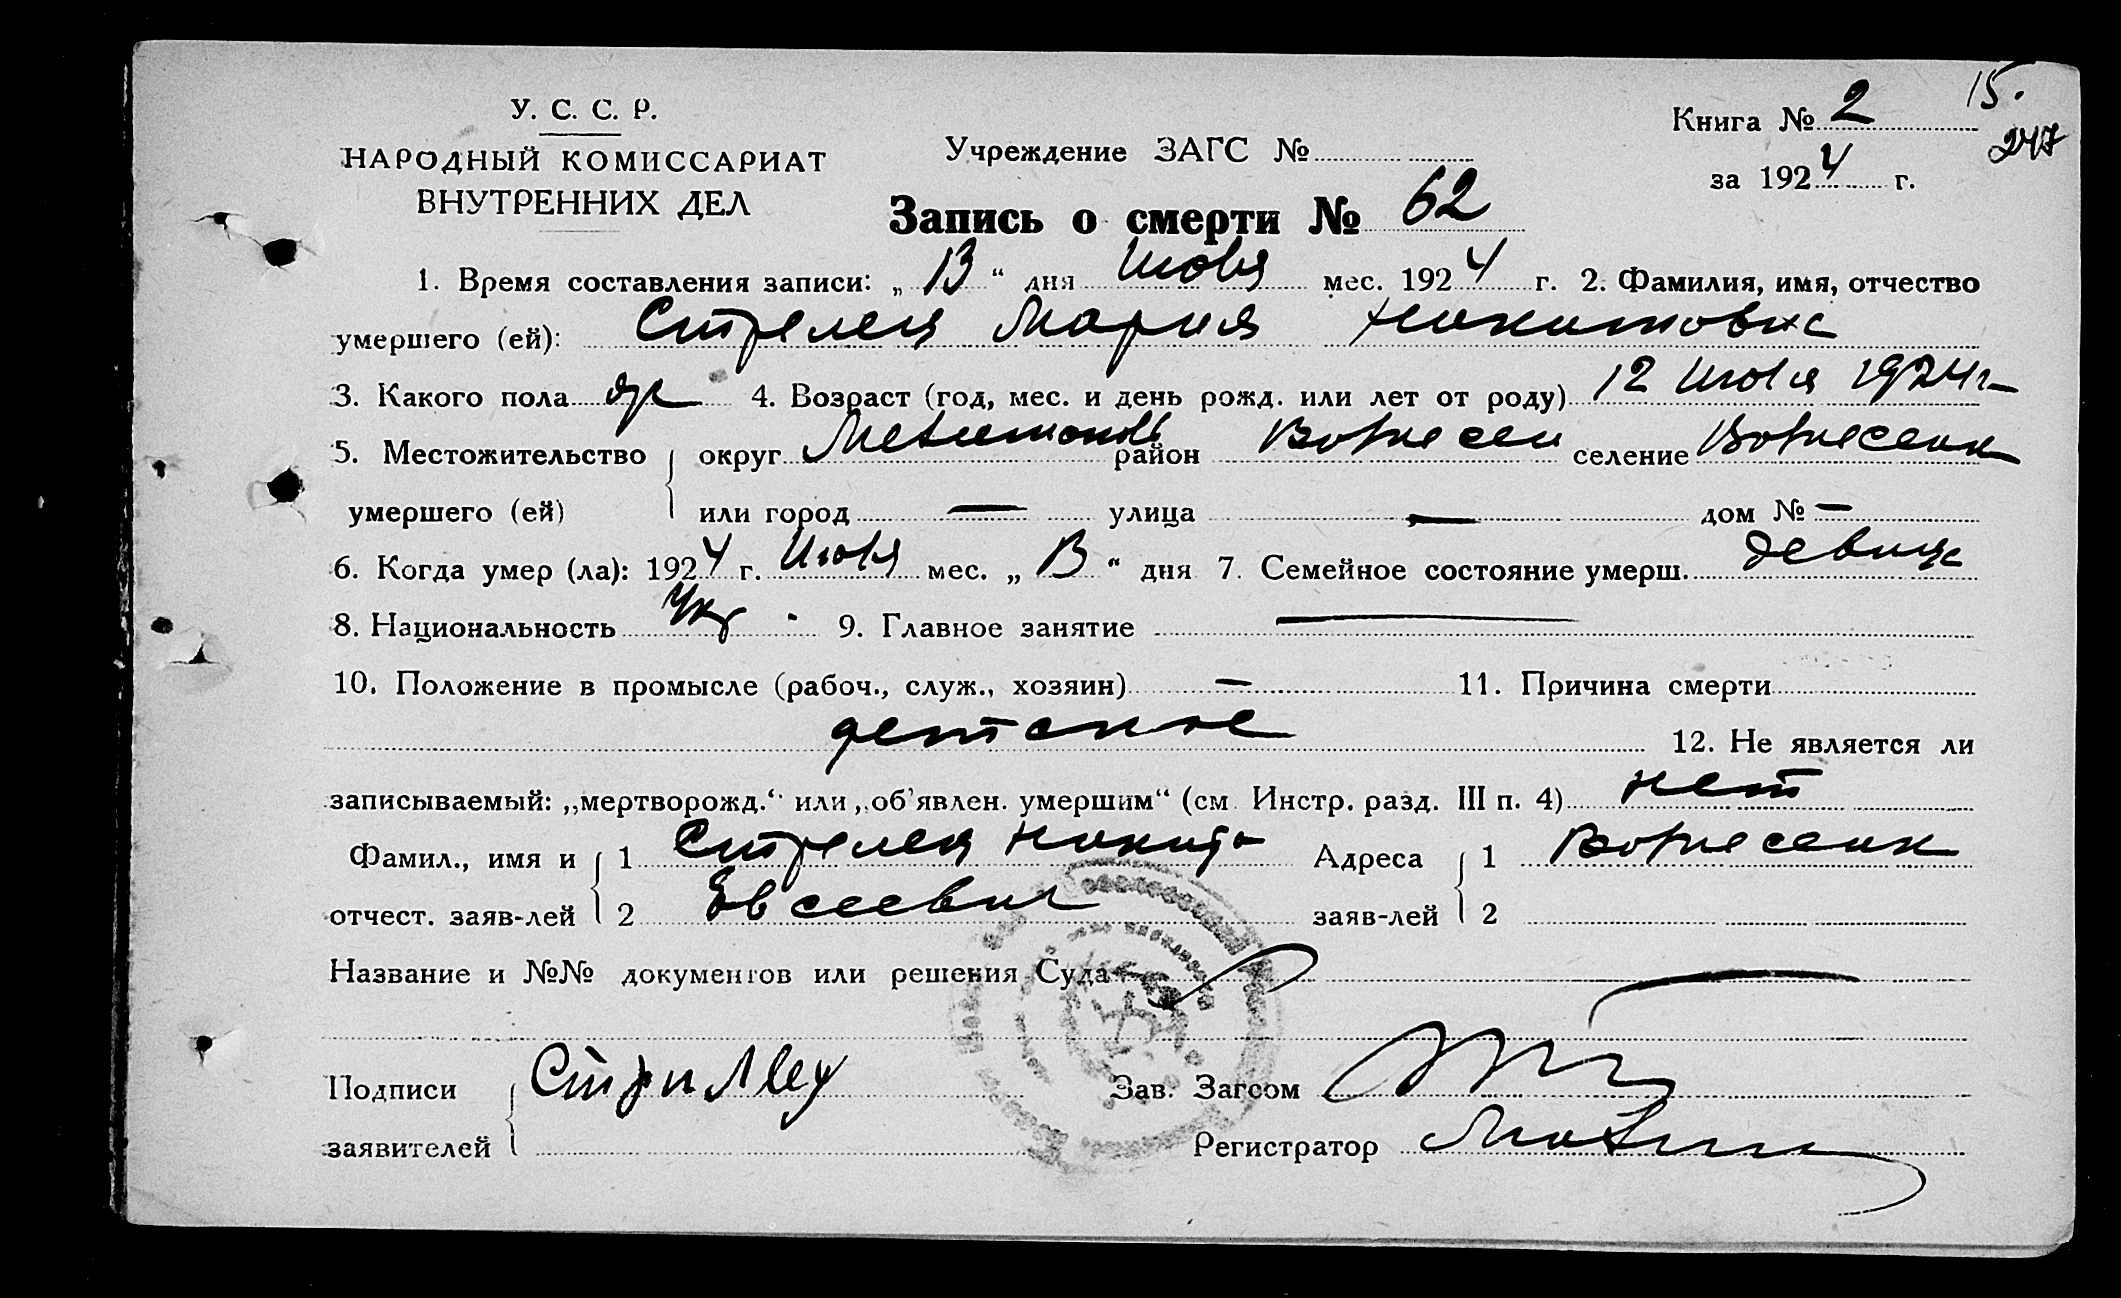 У. С. С. Р.
НАРОДНЫЙ КОМИССАРИАТ
ВНУТРЕННИХ ДЕЛ
Учреждение ЗАГС №
Книга № 2
15.
247
за 1924 г.
Запись о смерти № 62
1. Время составления записи: „13“ дня Июля мес. 1924 г. 2. Фамилия, имя, отчество
умершего (ей): Стрелец Мария Никитовнс
3. Какого пола 4. Возраст (год, мес. и день рожд. или лет от роду) 12 Июля 1924 г
5. Местожительство округ район Вознесен селение Вознесенк
умершего (ей) или город — улица — дом № —
6. Когда умер (ла): 1924 г. Июля мес. „13“ дня 7. Семейное состояние умерш. девица
8. Национальность Укр. 9. Главное занятие —
10. Положение в промысле (рабоч., служ., хозяин) — 11. Причина смерти
детское 12. Не является ли
записываемый: „мертворожд.“ или „об'явлен. умершим“ (см. Инстр. разд. III п. 4) нет
Фамил., имя и 1 Стрелец Никита Адреса 1 Вознесенк
отчест. заяв-лей 2 Евсеевич заяв-лей 2
Название и №№ документов или решения Суда
Подписи Зав. Загсом
заявителей Регистратор